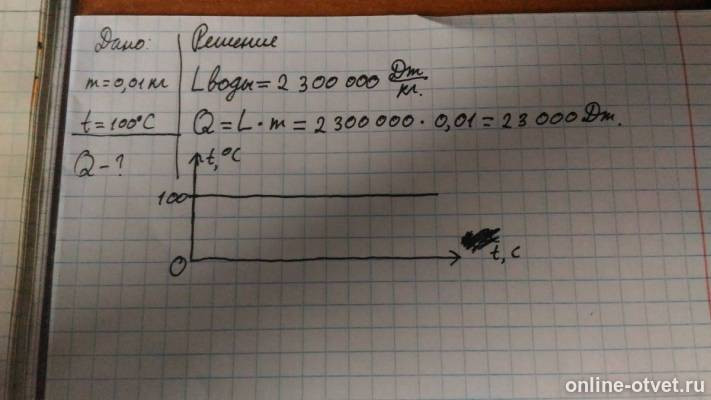 Дано: Решение
m = 0,01 кг L воды = 2 300 000 Дж/кг.
t = 100°C Q = L · m = 2 300 000 · 0,01 = 23 000 Дж.
Q - ?
t, °C
100
0
t, c
online-otvet.ru